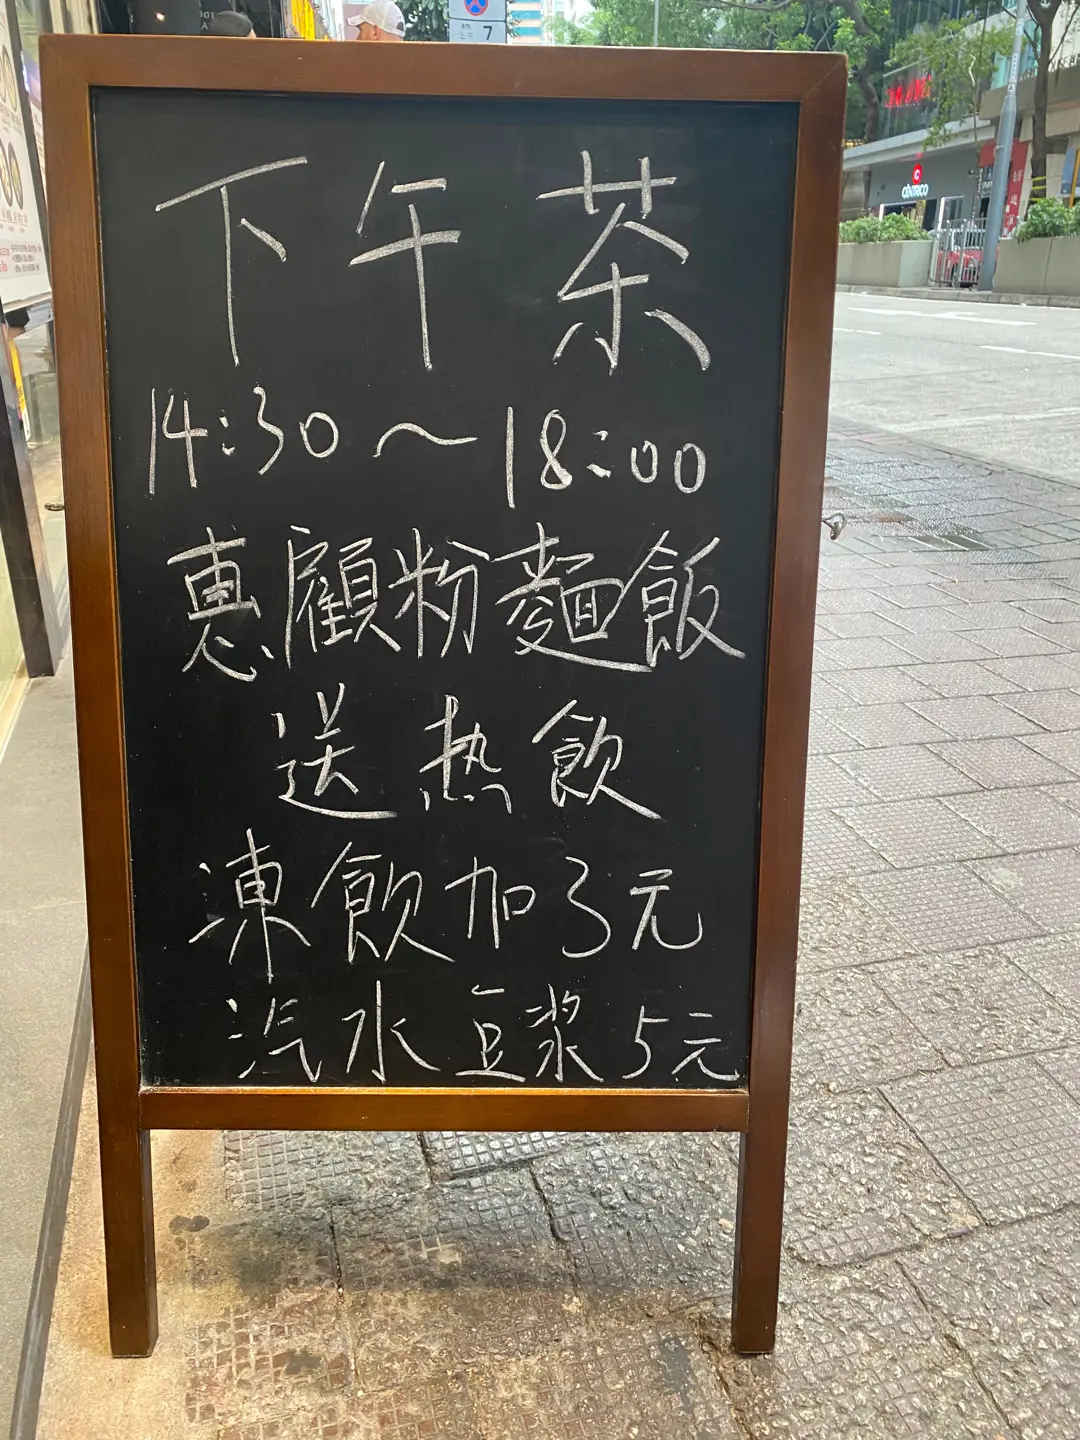 am
上午
7
CENTRICO
下午茶
14:30～18:00
惠顧粉麵飯
送热飲
凍飲加3元
汽水豆浆5元